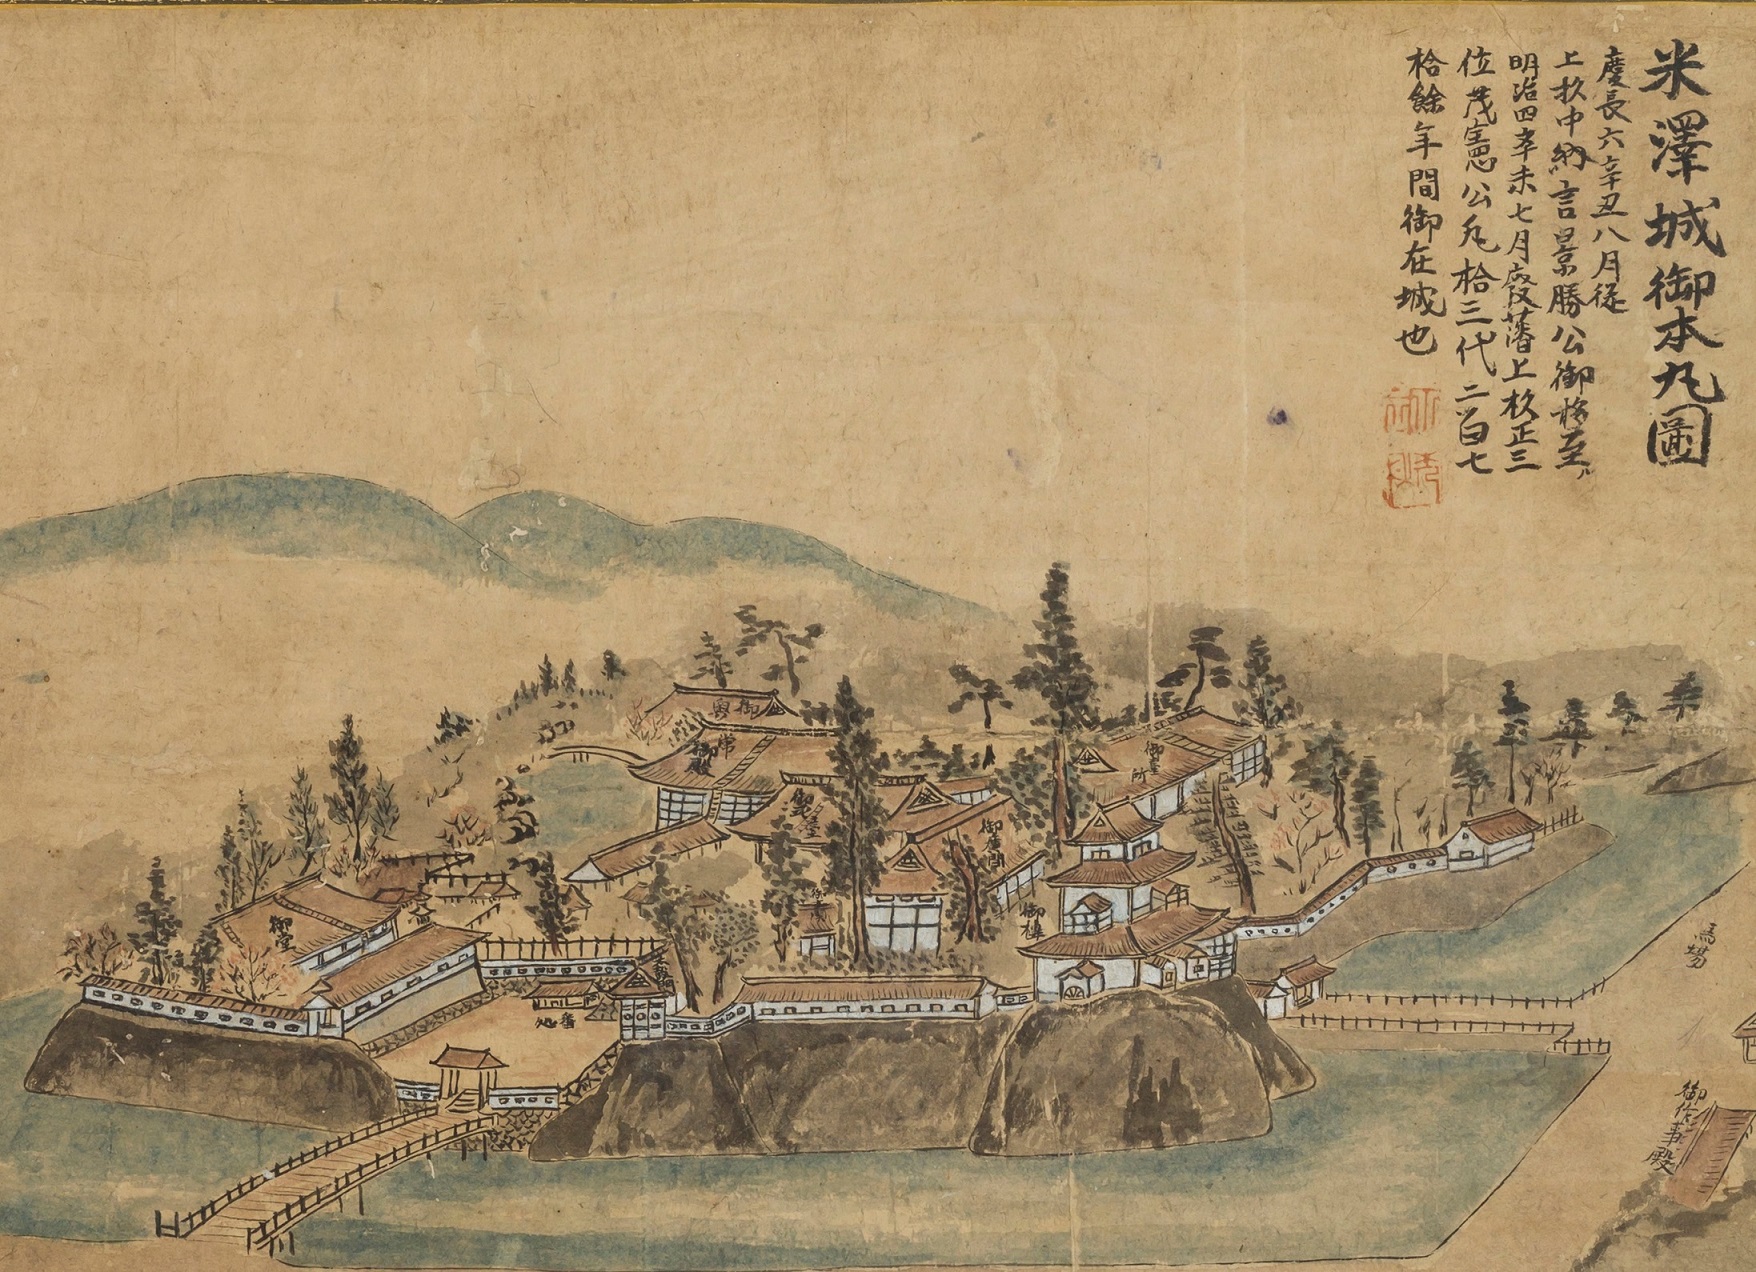 米澤城御本丸圖
慶長六辛丑八月従
上杦中納言景勝公御移至
明治四辛未七月廢藩上杦正三
位茂憲公凡拾三代二百七
拾餘年間御在城也
御奥
常御殿
御臺所
御廣間
御堂
御樓
番処
馬場
御作事殿